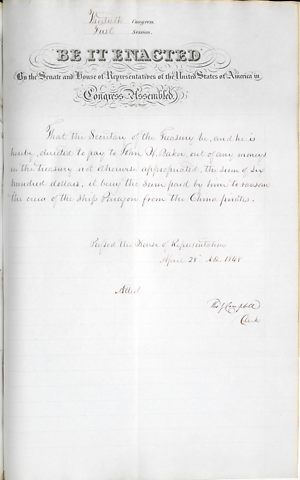 Thirtieth Congress
First Session.
BE IT ENACTED
By the Senate and House of Representatives of the United States of America in
Congress Assembled
That the Secretary of the Treasury be, and he is
hereby directed to pay to John W. Baker out of any money
in the treasury not otherwise appropriated, the sum of six
hundred dollars, it being the sum paid by him to ransom
the crew of the ship Paragon from the China pirates.
Passed the House of Representatives
April 28th A.D. 1848
Attest
Tho J Campbell
Clerk